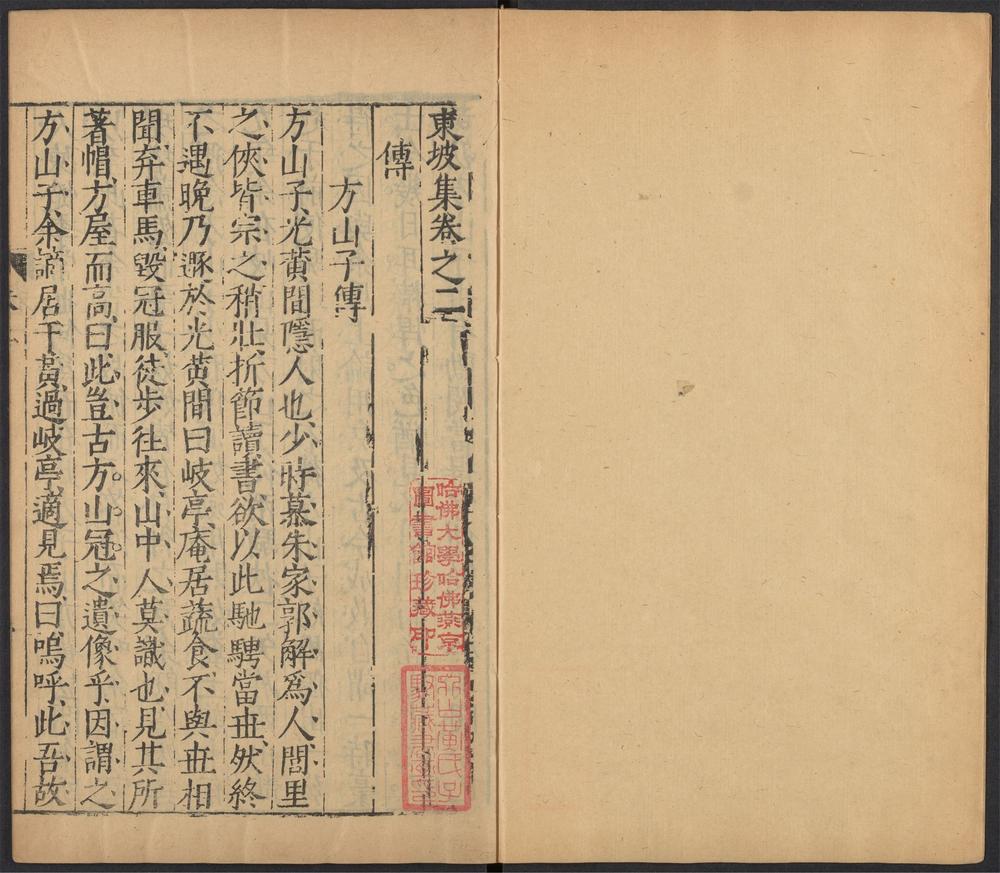 東坡集卷之二
傳
方山子傳
方山子、光黄間隱人也、少時慕朱家郭解爲人、閭里
之俠皆宗之、稍壯、折節讀書、欲以此馳騁當丗、然終
不遇、晚乃遯於光黄間曰岐亭、庵居蔬食、不與丗相
聞、弃車馬、毀冠服、徒步往來、山中人莫識也、見其所
著帽、方屋而高、曰、此豈古方山冠之遺像乎、因謂之
方山子、余謫居于黃、過岐亭、適見焉、曰、嗚呼、此吾故
哈佛大學哈佛燕京
圖書館珍藏印